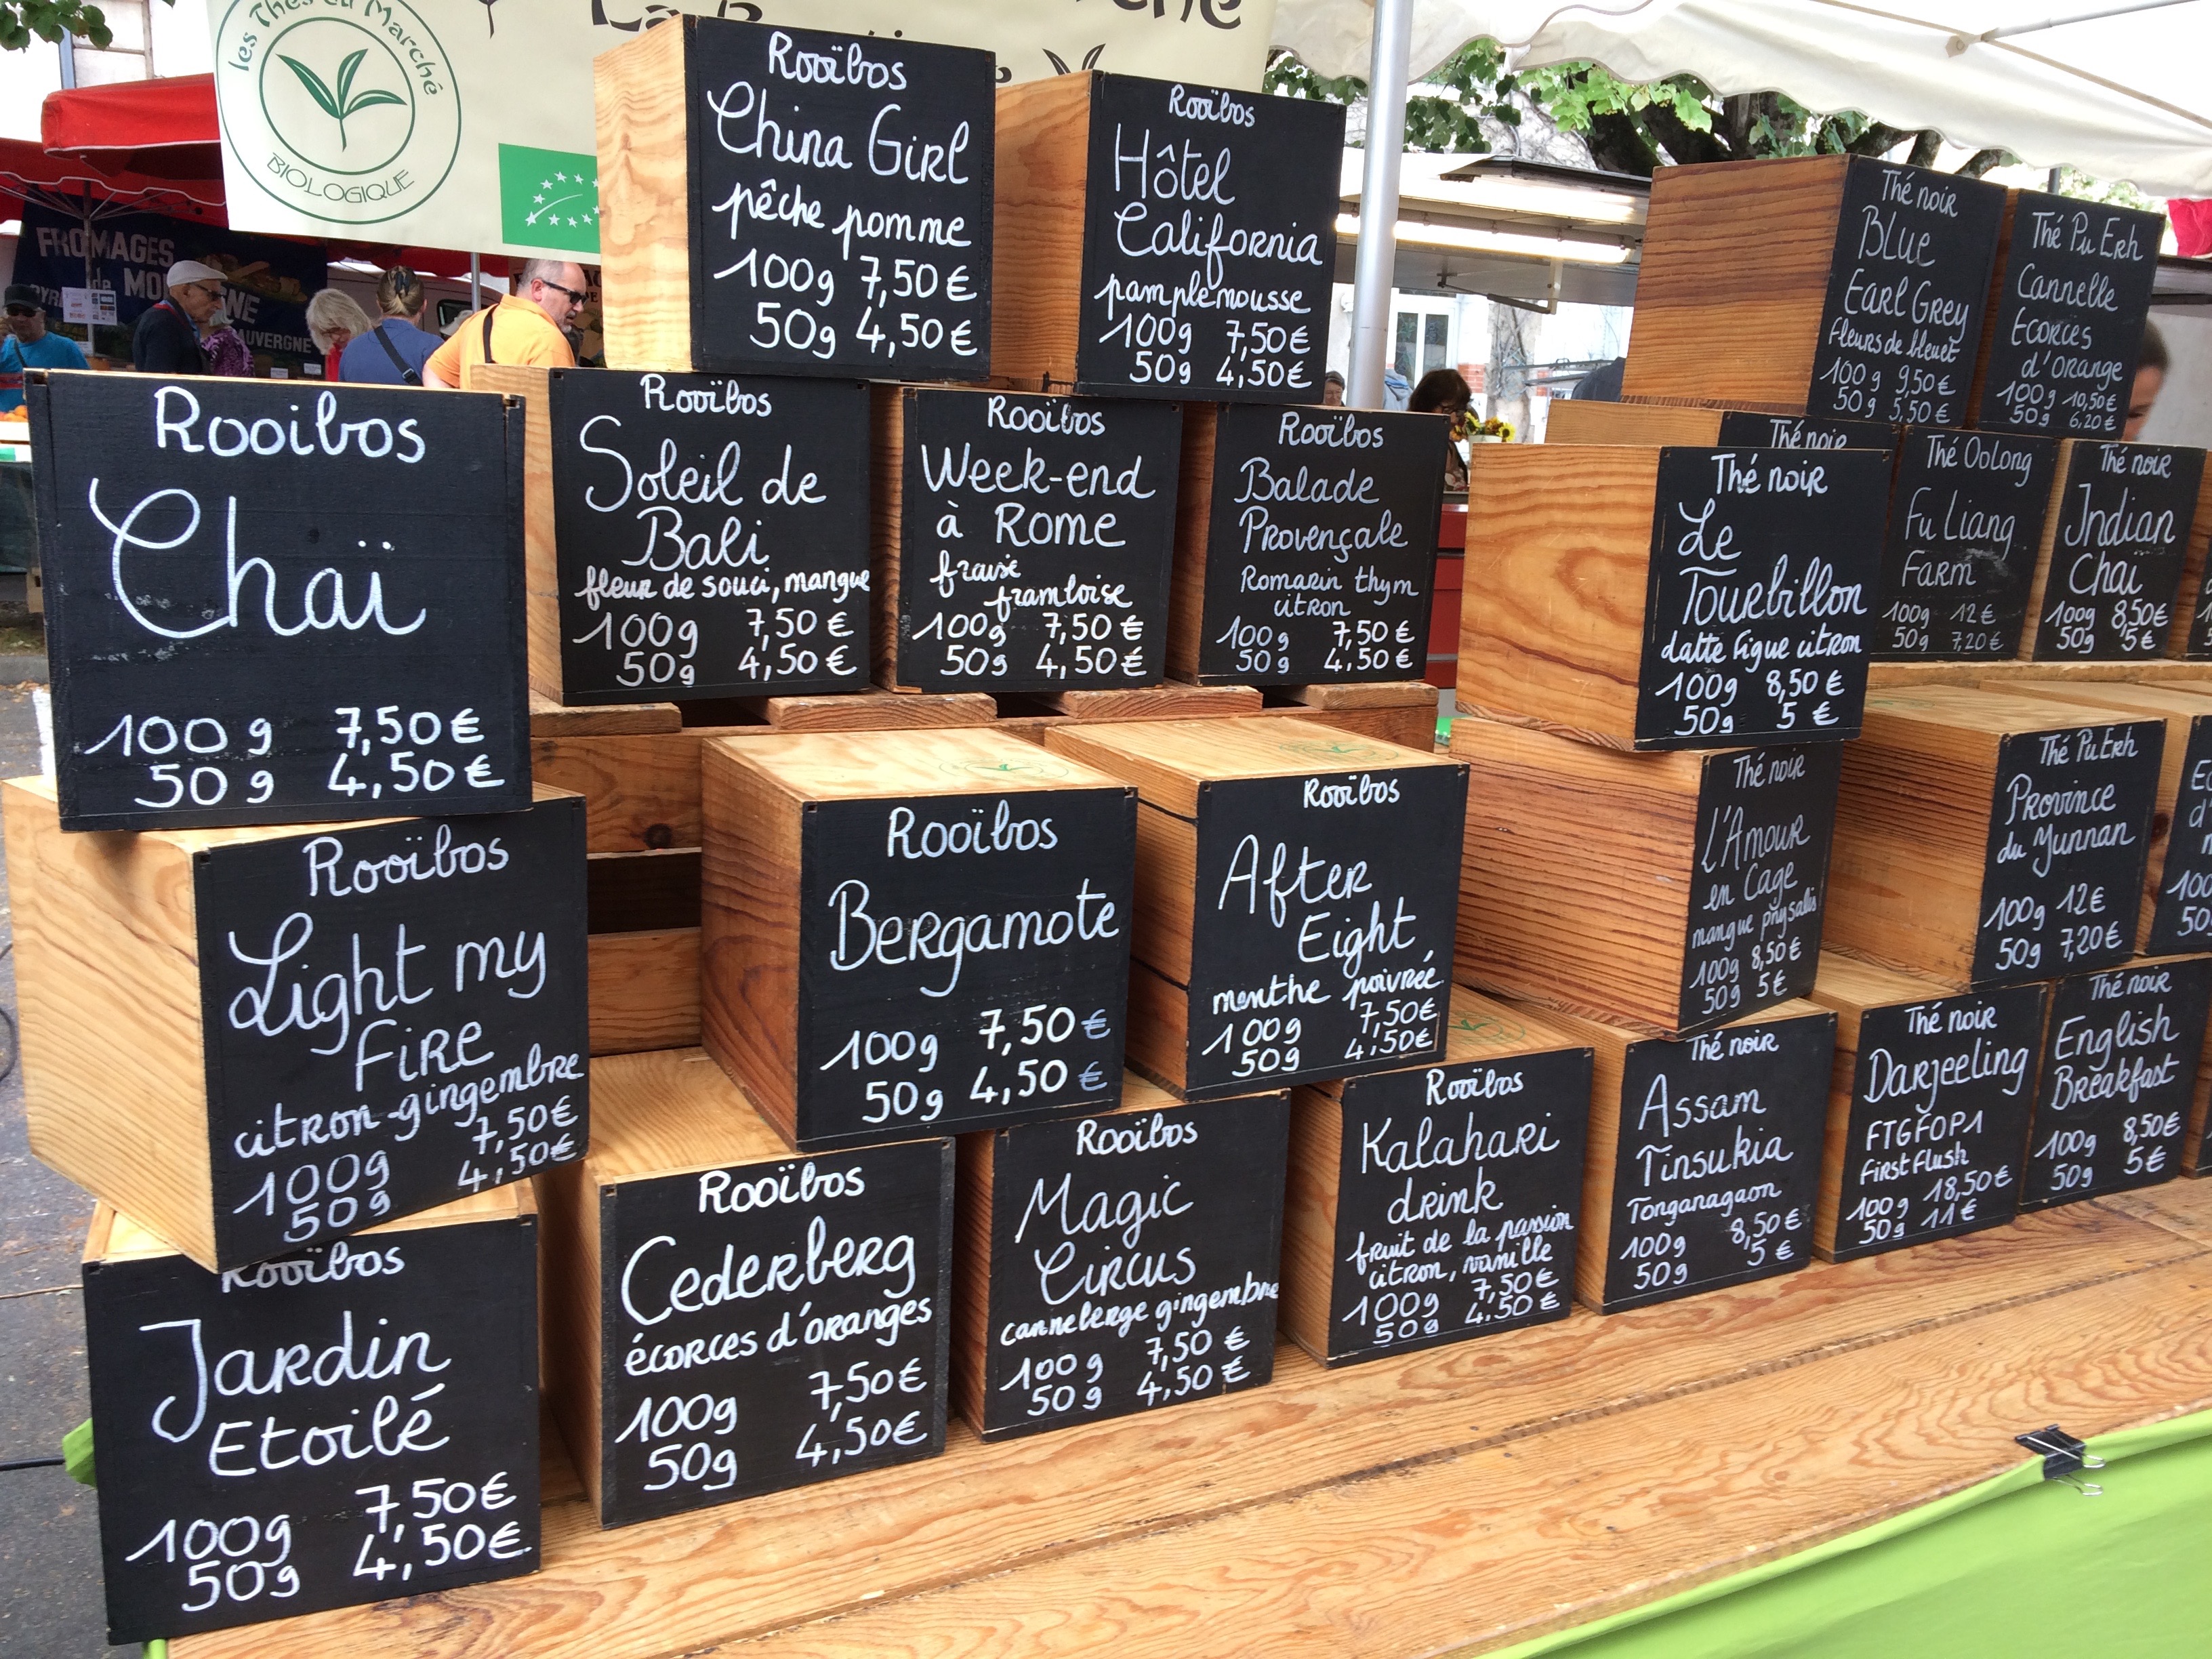 les Thés du Marché
BIOLOGIQUE
La
FROMAGES
de MONTAGNE
AUVERGNE
Rooïbos
China Girl
pêche pomme
100g 7,50€
50g 4,50€
Rooïbos
Hôtel
California
pamplemousse
100g 7,50€
50g 4,50€
Thé noir
Blue
Earl Grey
fleurs de bleuet
100g 9,50€
50g 5,50€
Thé Pu Erh
Cannelle
Ecorces
d'orange
100g 10,50€
50g 6,20€
Rooibos
Chaï
100g 7,50€
50g 4,50€
Rooïbos
Soleil de
Bali
fleur de souci, mangue
100g 7,50€
50g 4,50€
Rooïbos
Week-end
à Rome
fraise
framboise
100g 7,50€
50g 4,50€
Rooïbos
Balade
Provençale
Romarin thym
citron
100g 7,50€
50g 4,50€
Thé noir
Thé noir
Le
Tourbillon
datte figue citron
100g 8,50€
50g 5€
Thé Oolong
Fu Liang
Farm
100g 12€
50g 7,20€
Thé noir
Indian
Chai
100g 8,50€
50g 5€
Rooïbos
Light my
Fire
citron-gingembre
100g 7,50€
50g 4,50€
Rooïbos
Bergamote
100g 7,50€
50g 4,50€
Rooïbos
After
Eight
menthe poivrée
100g 7,50€
50g 4,50€
Thé noir
L'Amour
en Cage
mangue physalis
100g 8,50€
50g 5€
Thé Pu Erh
Province
du Yunnan
100g 12€
50g 7,20€
Rooïbos
Jardin
Etoilé
100g 7,50€
50g 4,50€
Rooïbos
Cederberg
écorces d'oranges
100g 7,50€
50g 4,50€
Rooïbos
Magic
Circus
canneberge gingembre
100g 7,50€
50g 4,50€
Rooïbos
Kalahari
drink
fruit de la passion
citron, vanille
100g 7,50€
50g 4,50€
Thé noir
Assam
Tinsukia
Tonganagaon
100g 8,50€
50g 5€
Thé noir
Darjeeling
FTGFOP1
First flush
100g 18,50€
50g 11€
Thé noir
English
Breakfast
100g 8,50€
50g 5€